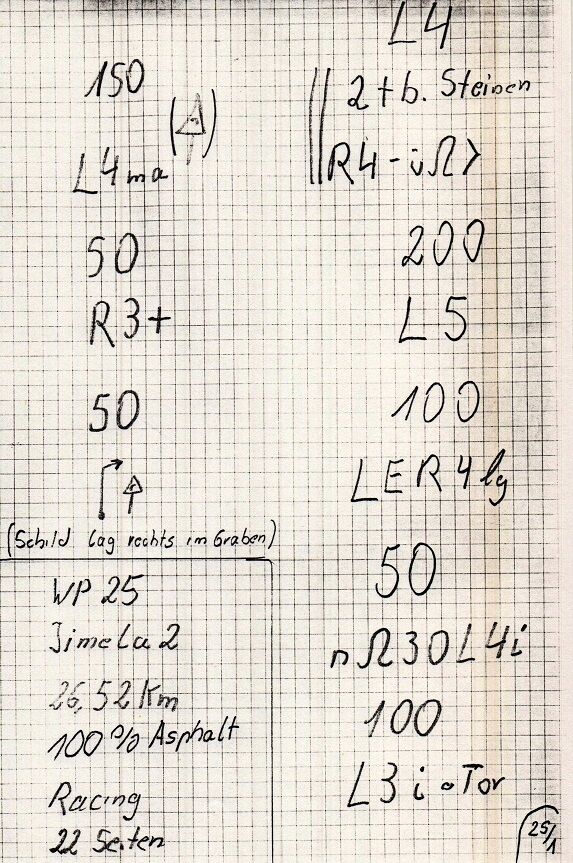 150
L4ma
50
R3+
50
(Schild lag rechts im Graben)
WP 25
Jimela 2
26,52 Km
100% Asphalt
Racing
22 Seiten
L4
2+b. Steinen
R4-iΩ>
200
L5
100
LER4lg
50
nΩ30L4i
100
L3i Tor
25/1